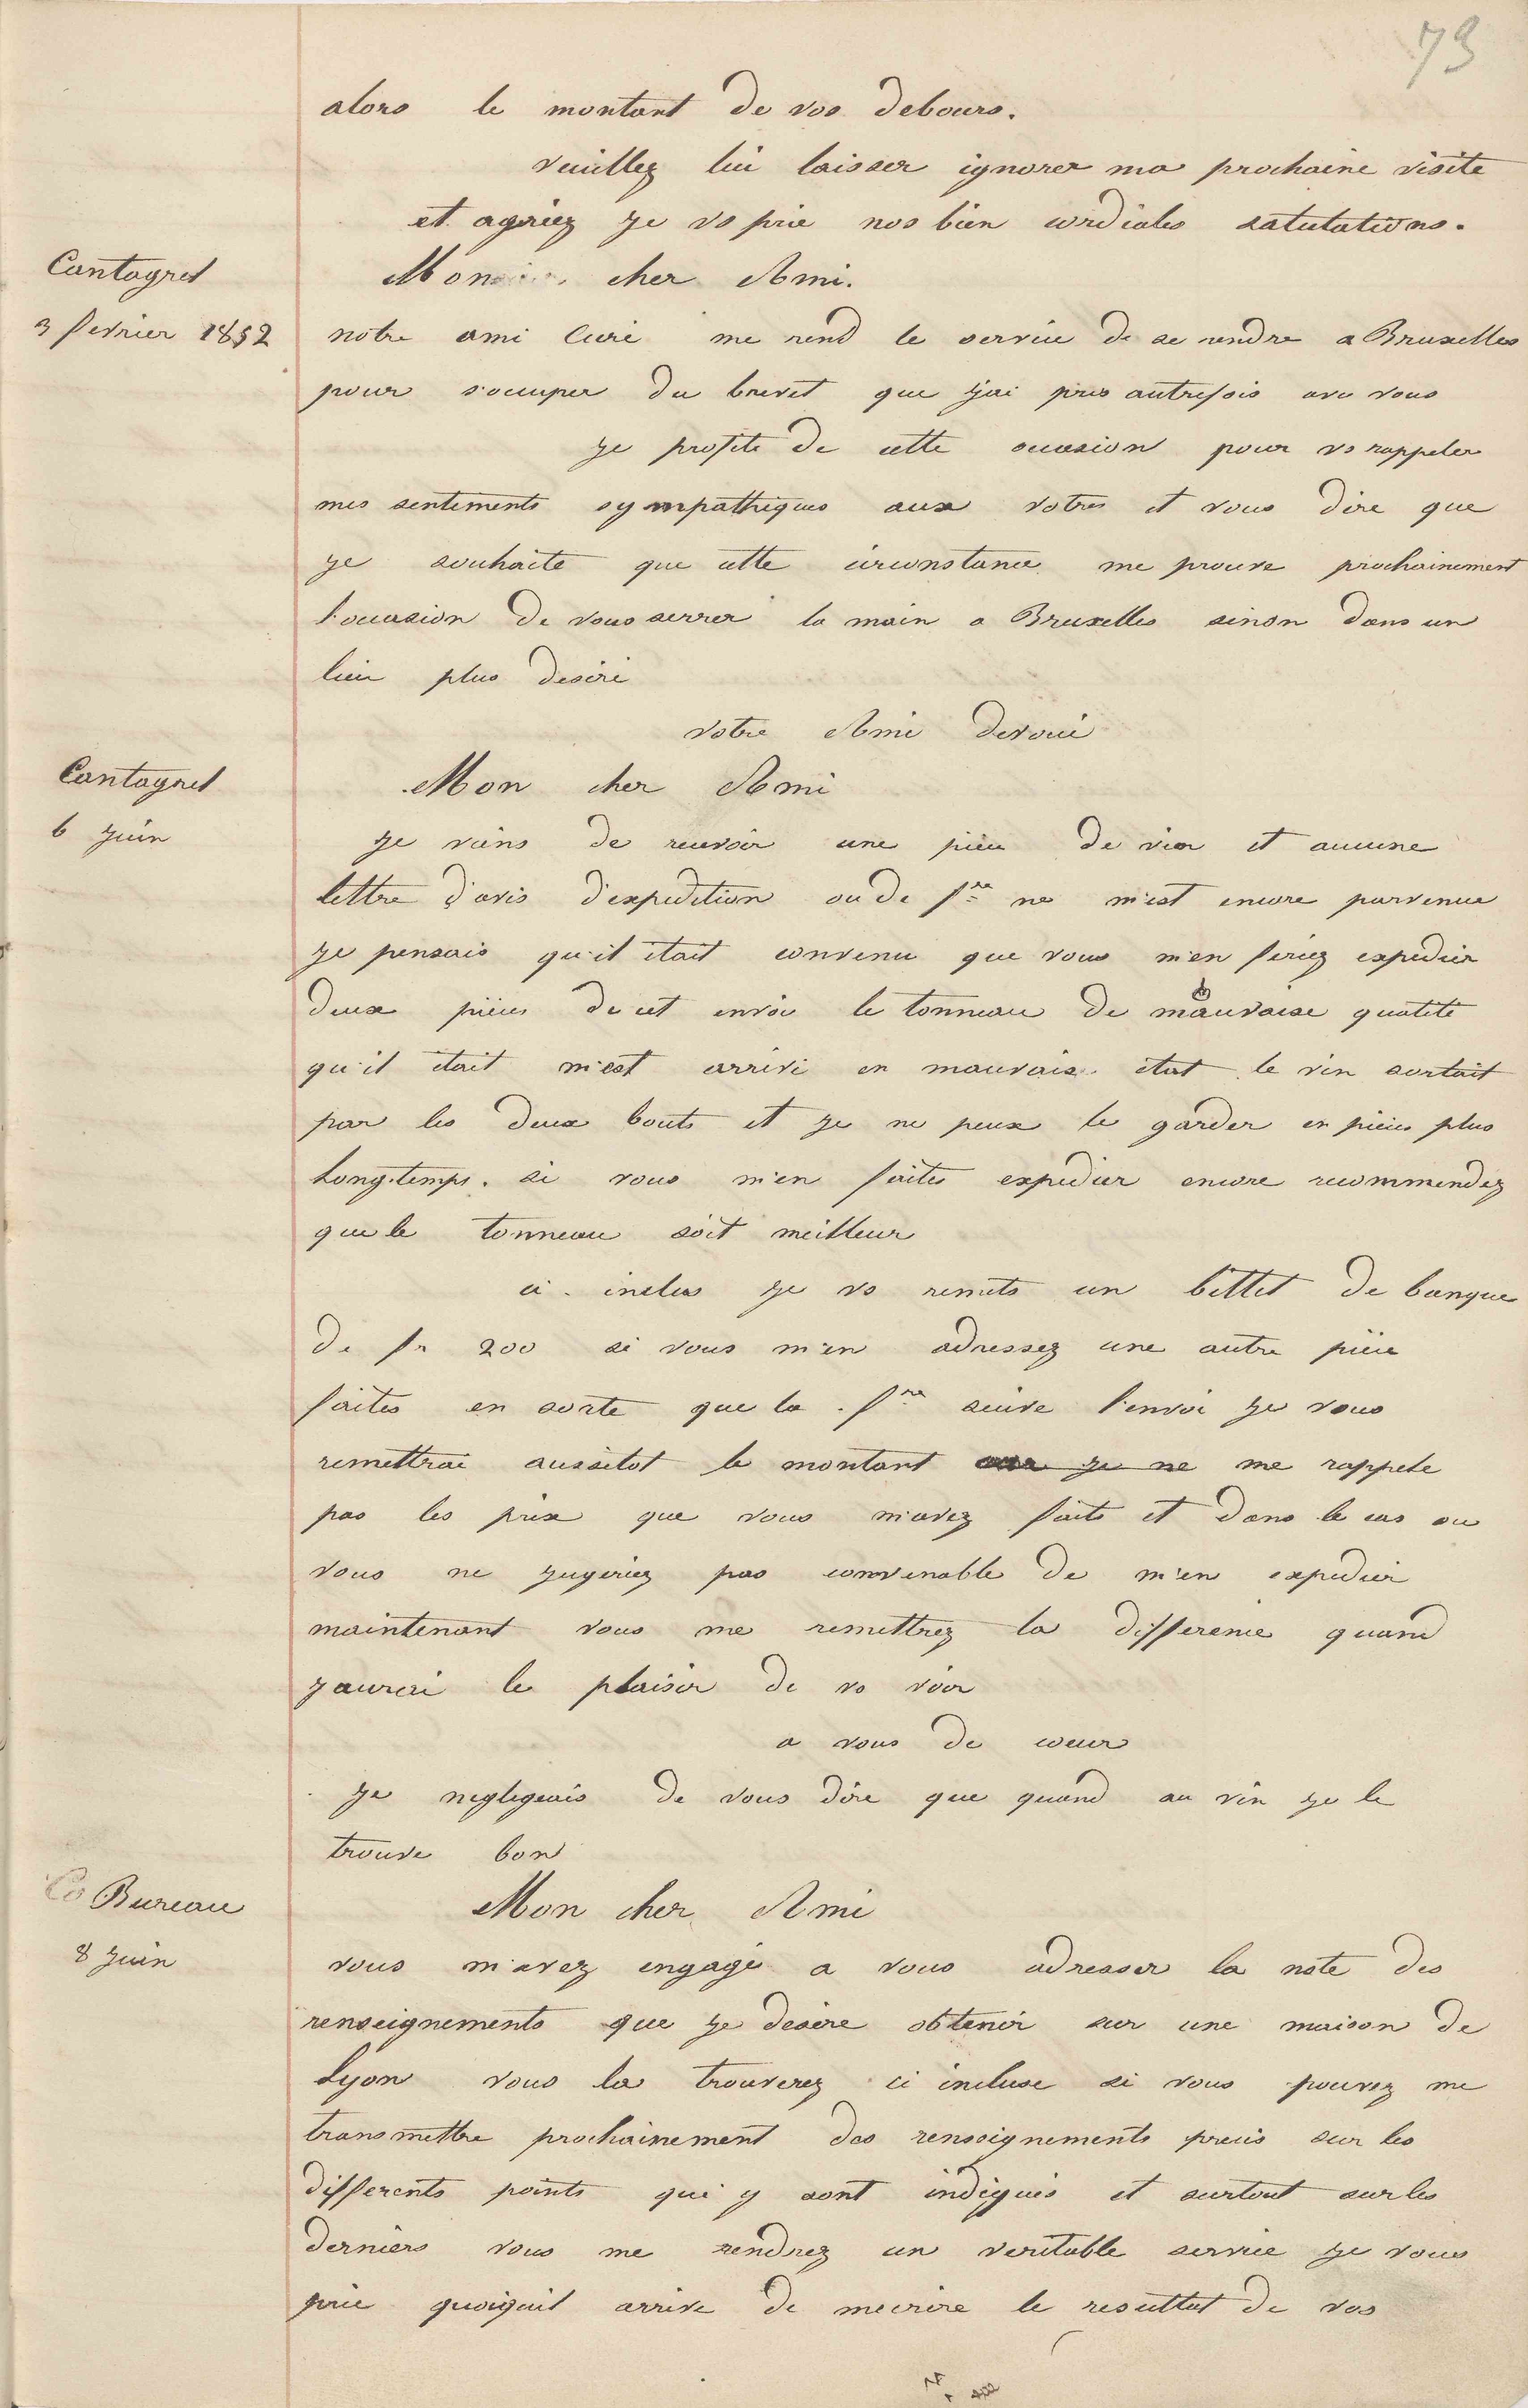 73
alors le montant de vos debours.
veuillez lui laisser ignorer ma prochaine visite
et agréez je vs prie nos bien cordiales salutations.
Cantagrel
3 fevrier 1852
Mon cher Ami.
notre ami Curie me rend le service de se rendre a Bruxelles
pour s'occuper du brevet que j'ai pris autrefois avec vous
je profite de cette occasion pour vs rappeler
mes sentiments sympathiques aux votres et vous dire que
je souhaite que cette circonstance me prouve prochainement
l'occasion de vous serrer la main a Bruxelles sinon dans un
lieu plus desiré
votre Ami devoué
Cantagrel
6 juin
Mon cher Ami
je viens de recevoir une pièce de vin et aucune
lettre d'avis d'expedition ou de fre ne m'est encore parvenue
je pensais qu'il était convenu que vous m'en feriez expedier
deux pièces de cet envoi le tonneau de mauvaise qualité
qu'il était m'est arrivé en mauvais état le vin sortait
par les deux bouts et je ne peux le garder en pièces plus
Longtemps. si vous m'en faites expedier encore recommendez
que le tonneau soit meilleur
ci. inclus je vs remets un billet de banque
de fr 200 si vous m'en adressez une autre pièce
faites en sorte que la fre suive l'envoi je vous
remettrai aussitot le montant je ne me rappele
pas les prix que vous m'avez faits et dans le cas ou
vous ne jugeriez pas convenable de m'en expedier
maintenant vous me remettrez la difference quand
j'aurai le plaisir de vs voir
a vous de coeur
je negligeais de vous dire que quand au vin je le
trouve bon
Co Bureau
8 juin
Mon cher Ami
vous m'avez engagé a vous adresser la note des
renseignements que je desire obtenir sur une maison de
Lyon vous la trouverez ci incluse si vous pouvez me
transmettre prochainement des renseignements precis sur les
differents points qui y sont indiqués et surtout sur les
derniers vous me rendrez un veritable service je vous
prie quoiquil arrive de mecrire le resultat de vos